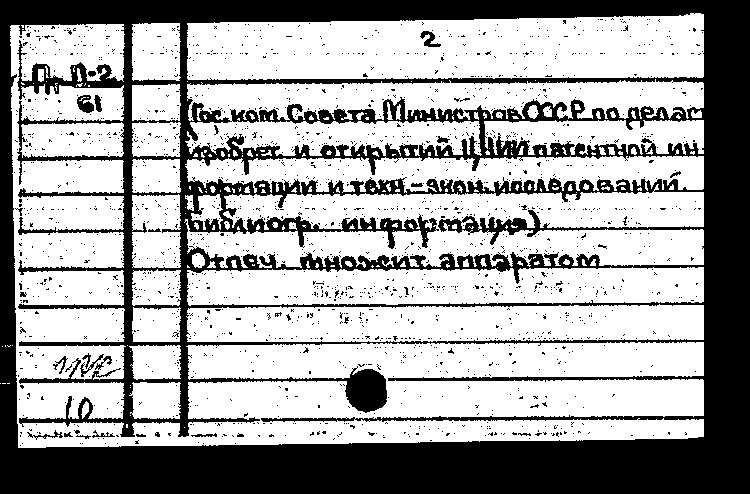 2
Пп П-2
61
(Гос. ком. Совета Министров СССР по делас
изобрет. и открытий. ЦНИИ патентной ин-
формации и техн.-экон. исследований.
библиогр. информация).
Отпеч. множит. аппаратом
10